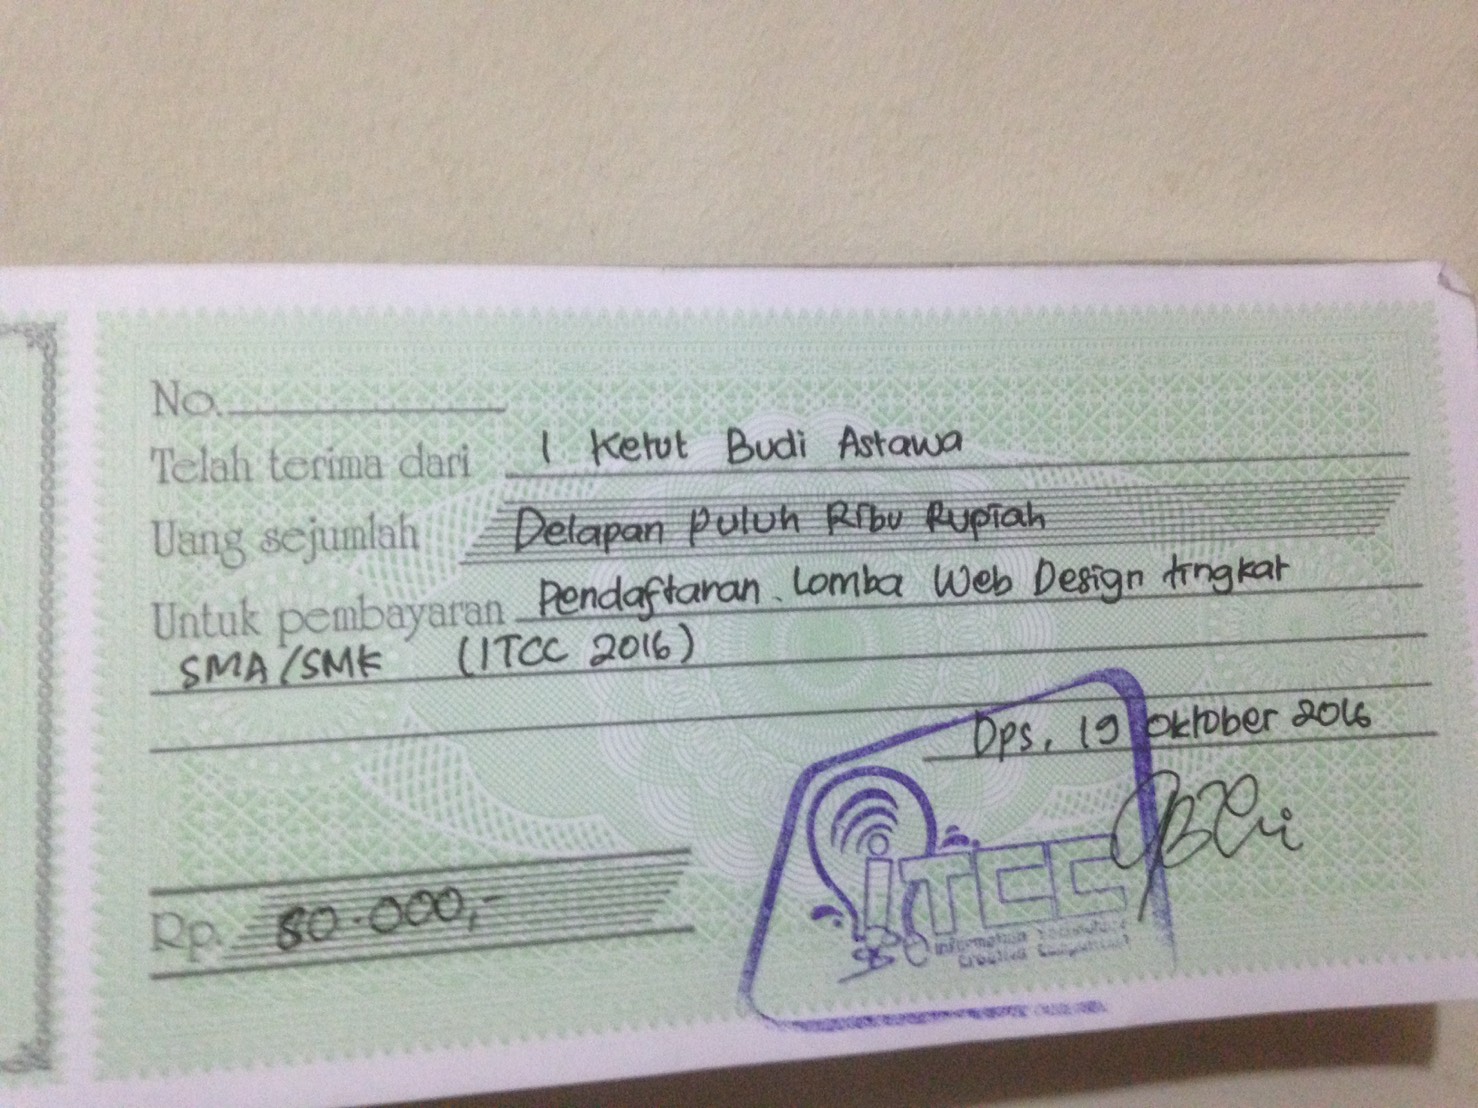 No.
Telah terima dari I Ketut Budi Astawa
Uang sejumlah Delapan puluh Ribu Rupiah
Untuk pembayaran Pendaftaran Lomba Web Design tingkat
SMA/SMK (ITCC 2016)
Dps, 19 Oktober 2016
Rp. 80.000,-
iTCC
Information Technology
Creative Competition